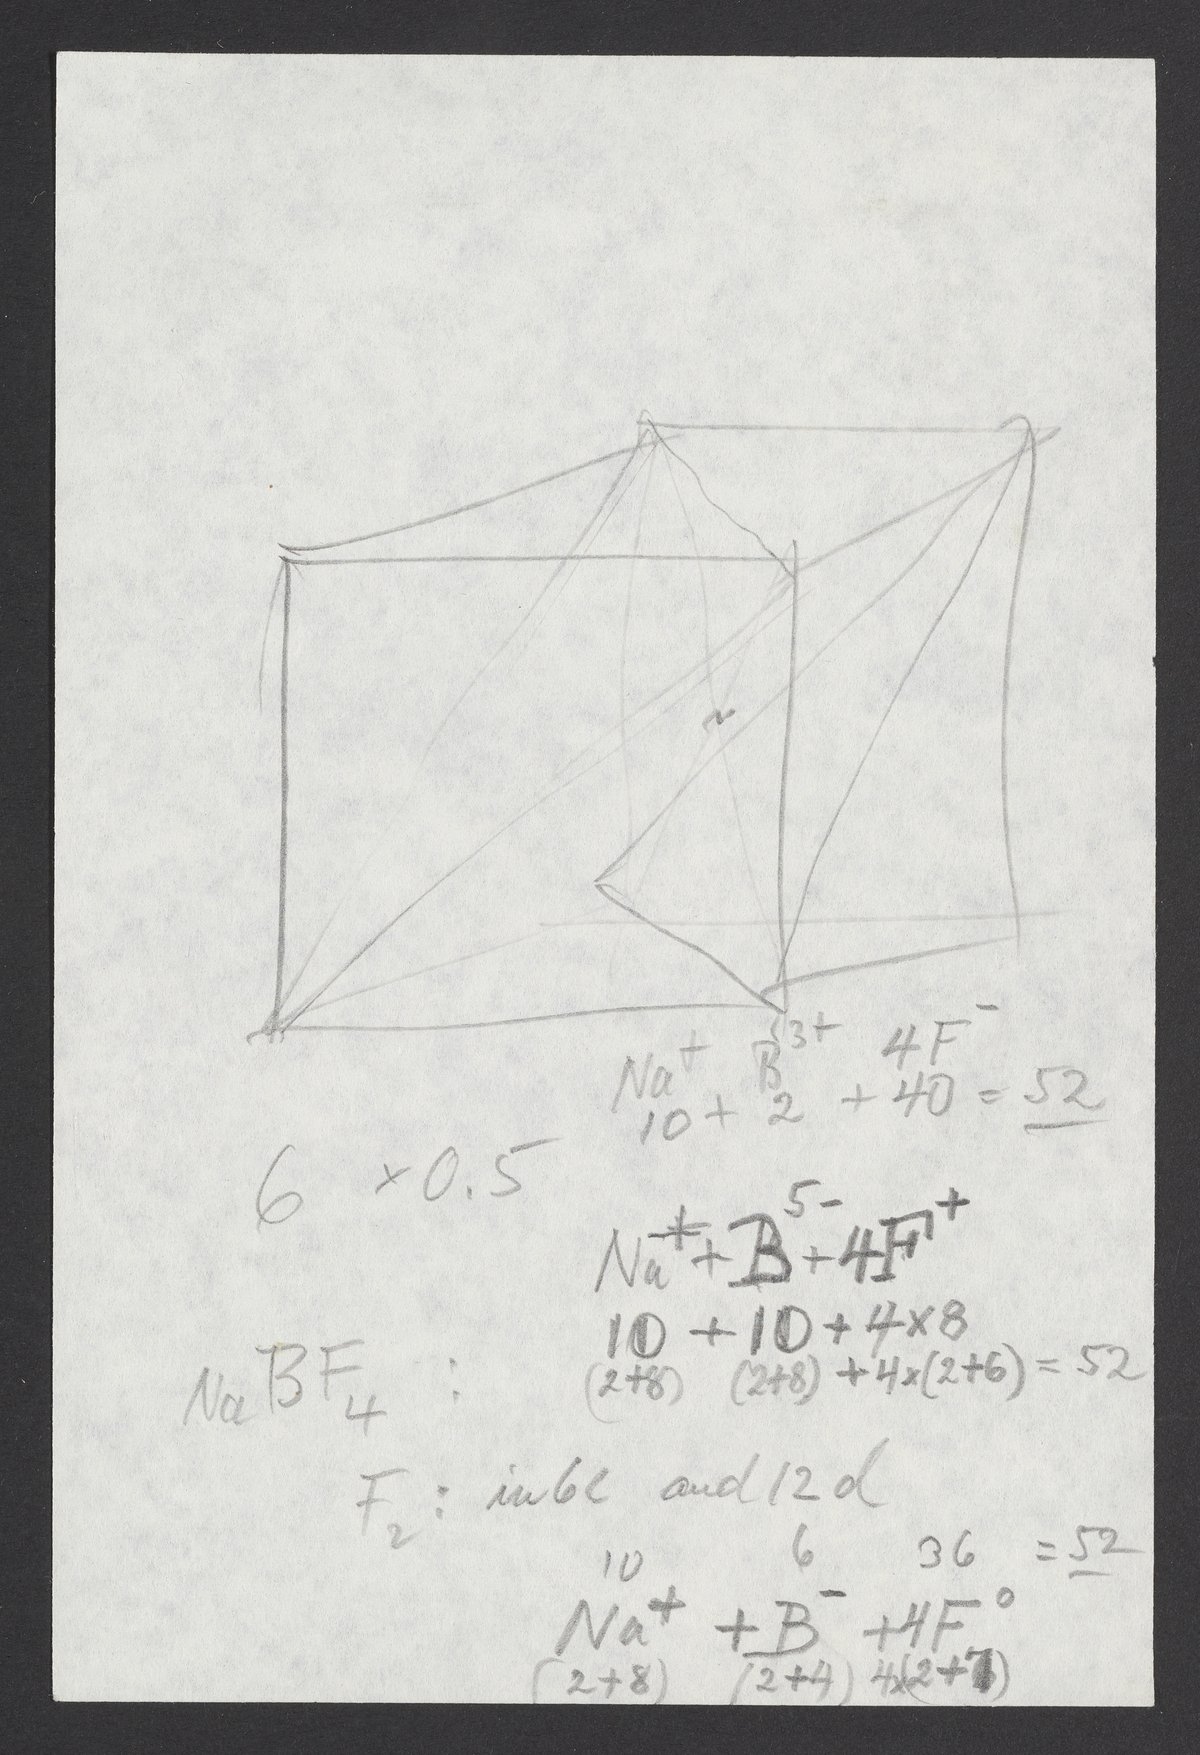 Na⁺ B³⁺ 4F⁻
10 + 2 + 40 = 52
6 × 0.5
Na⁺ + B⁵⁻ + 4F⁺
10 + 10 + 4×8
(2+8) (2+8) + 4×(2+6) = 52
NaBF₄ :
F₂ : in 6c and 12d
10 6 36 = 52
Na⁺ + B⁻ + 4F⁰
(2+8) (2+4) 4×(2+7)